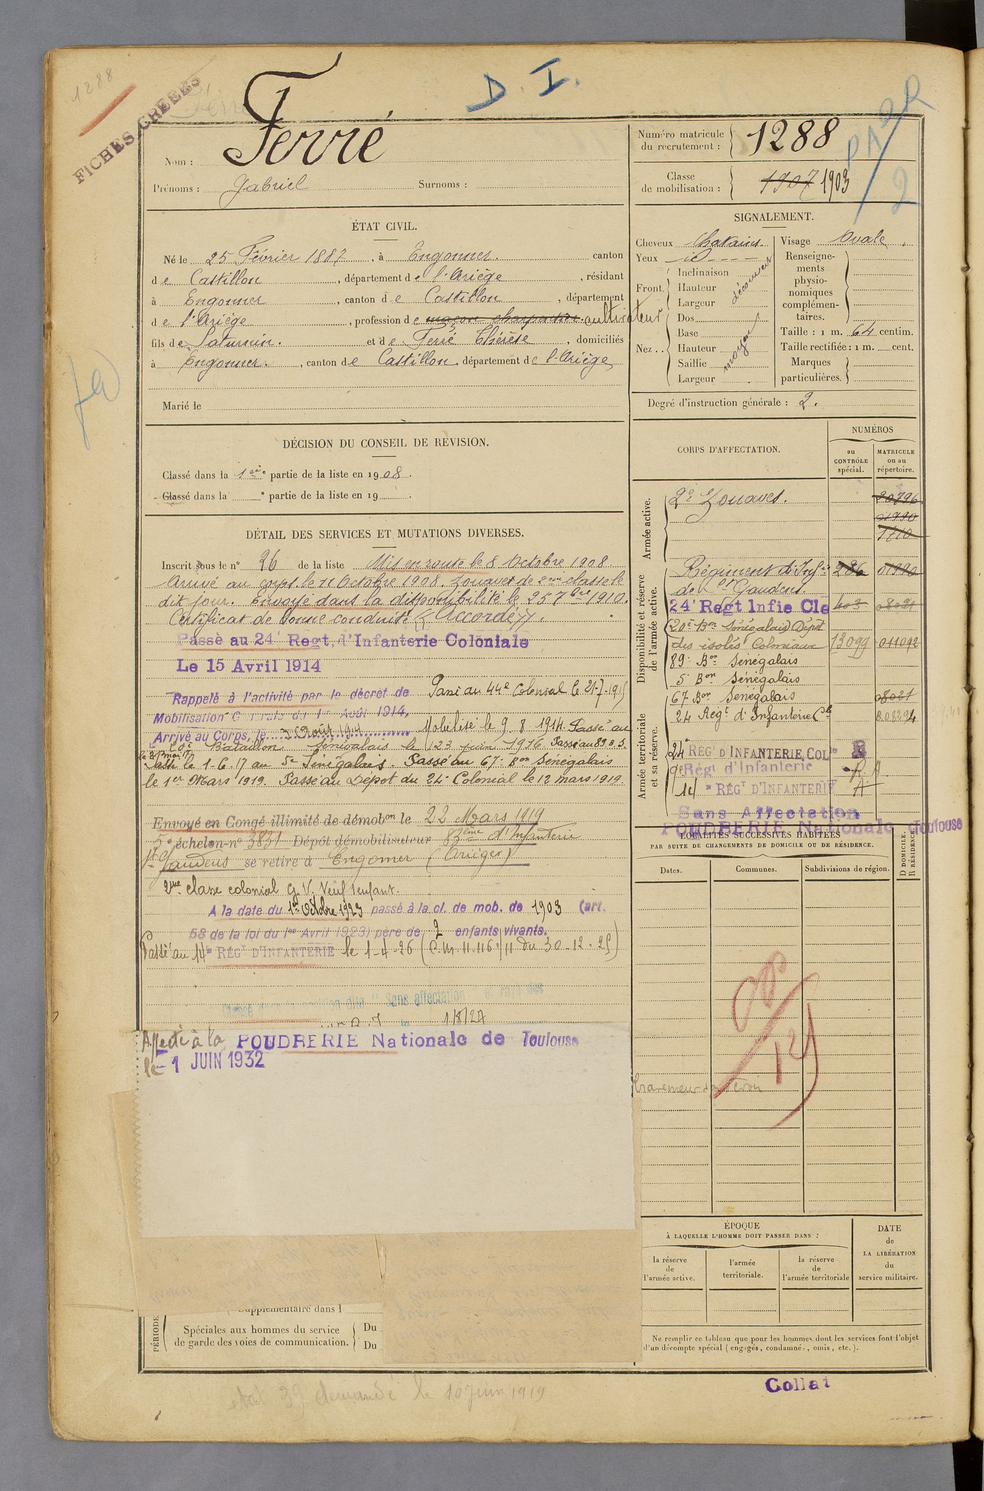 1288
FICHES CRÉÉES
D. I.
Nom : Ferré
Prénoms : Gabriel Surnoms :
Numéro matricule du recrutement : 1288
Classe de mobilisation : 1907 1903
ÉTAT CIVIL.
Né le 25 Février 1887, à Engomer. canton
de Castillon, département de l'Ariège, résidant
à Engomer, canton de Castillon, département
de l'Ariège, profession de maçon charpentier cultivateur
fils de Saturnin. et de Ferré Thérèse, domiciliés
à Engomer., canton de Castillon. département de l'Ariège
Marié le
SIGNALEMENT.
Cheveux chatains
Yeux id
Front. Inclinaison
Hauteur
Largeur
découvert
Nez.. Dos
Base
Hauteur
Saillie
Largeur
moyen
Visage Ovale.
Renseignements physionomiques complémentaires.
Taille : 1 m. 64 centim.
Taille rectifiée : 1 m. cent.
Marques particulières.
Degré d'instruction générale : 2.
DÉCISION DU CONSEIL DE REVISION.
Classé dans la 1ère partie de la liste en 1908.
Classé dans la ° partie de la liste en 19
DÉTAIL DES SERVICES ET MUTATIONS DIVERSES.
Inscrit sous le n° 96 de la liste Mis en route le 8 Octobre 1908
Arrivé au corps le 11 Octobre 1908. Zouave de 2me classe le
dit jour. Envoyé dans la disponibilité le 25 7bre 1910.
Certificat de bonne conduite "Accordé".
Passé au 24e Regt. d'Infanterie Coloniale
Le 15 Avril 1914
Rappelé à l'activité par le décret de
Mobilisation Générale du 1er Août 1914,
Passé au 44e Colonial le 21-7-1915
Arrivé au Corps, le 3 Août 1914
Mobilisé le 9. 8. 1914. Passé au
20e Bataillon Sénégalais le 23 juin 1916 Passé au 89 B.S.
Passé le 1-6-17 au 5e Sénégalais. Passé au 67e Bon Sénégalais
le 1er Mars 1919. Passé au Dépôt du 24e Colonial le 12 mars 1919.
Envoyé en Congé illimité de démobon le 22 Mars 1919
5e échelon-n° 3831 Dépôt démobilisateur 83ème d'Infanterie
St Gaudens se retire à Engomer (Ariège)
2me classe colonial
A la date du 1er Octobre 1923 passé à la cl. de mob. de 1903 (art.
58 de la loi du 1er Avril 1923) père de 2 enfants vivants.
Passé au 14e RÉGt D'INFANTERIE le 1-4-26 (C.M. 11.116/11 du 30-12-25)
1/8/27
Affecté à la POUDRERIE Nationale de Toulouse
le -1 JUIN 1932
CORPS D'AFFECTATION.
NUMÉROS
au CONTRÔLE spécial.
MATRICULE ou au répertoire.
Armée active.
2e Zouaves.
Disponibilité et réserve de l'armée active.
Régiment d'Infie 286 01990
de St Gaudens.
24e Regt Infie Cle 403
20e Bon Sénégalais Dépôt
des isolés Coloniaux 13099 011092
89e Bon Sénégalais
5 Bon Sénégalais
67 Bon Sénégalais
24 Régt d'Infanterie Cle
Armée territoriale et sa réserve.
24e RÉGt D'INFANTERIE COLle R
Régt d'Infanterie
14e RÉGt D'INFANTERIE
Sans Affectation
POUDRERIE Nationale Toulouse
LOCALITÉS SUCCESSIVES HABITÉES
PAR SUITE DE CHANGEMENTS DE DOMICILE OU DE RÉSIDENCE.
Dates. Communes. Subdivisions de région. D DOMICILE. R RÉSIDENCE.
ÉPOQUE
À LAQUELLE L'HOMME DOIT PASSER DANS :
la réserve de l'armée active.
l'armée territoriale.
la réserve de l'armée territoriale
DATE de LA LIBÉRATION du service militaire.
Ne remplir ce tableau que pour les hommes dont les services font l'objet
d'un décompte spécial (engagés, condamnés, omis, etc.).
Supplémentaire dans l
PÉRIODES
Spéciales aux hommes du service
de garde des voies de communication. Du
Du
état 39 demandé le 10 juin 1919
Collat